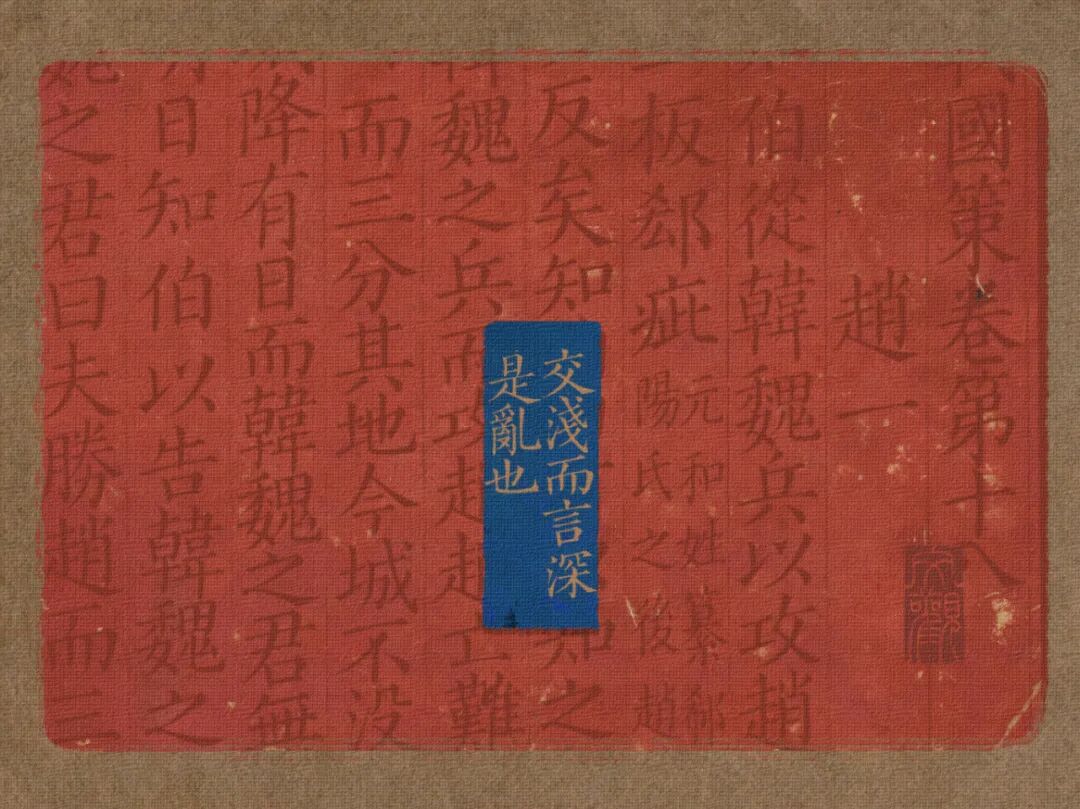 國策卷第十八
趙一
伯從韓魏兵以攻趙
板郄疵
元和姓纂郄
陽氏之後趙
反矣知
知之
交淺而言深
是亂也
韓魏之兵而攻趙趙亡難
而三分其地今城不没
降有日而韓魏之君無
明日知伯以告韓魏之
魏之君曰夫勝趙而三